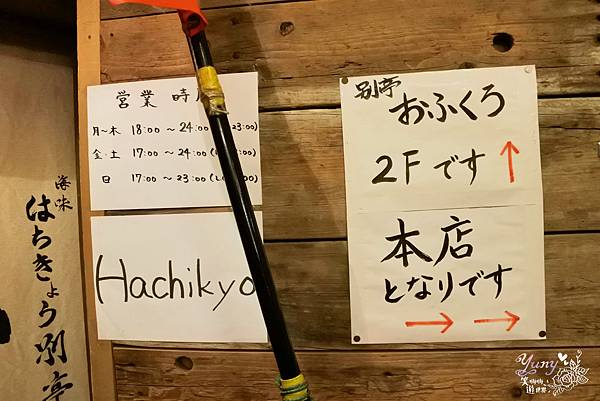 海味
はちきょう別亭
営業時
月〜木 18:00 〜 24:00 (23:00)
金・土 17:00 〜 24:00 (
日 17:00 〜 23:00 (
Hachikyo
別亭
おふくろ
2Fです↑
本店
となりです
→ →
Yuny